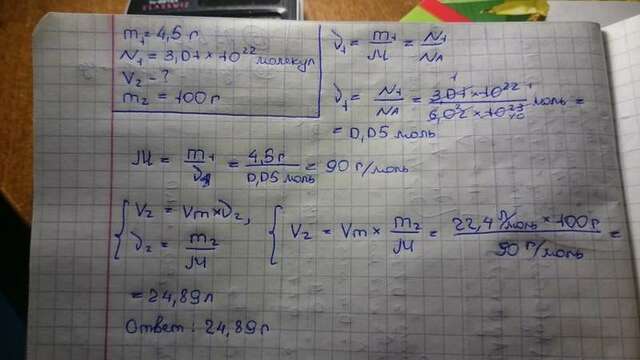 m₁ = 4,5 г
N₁ = 3,01 × 10²² молекул
V₂ - ?
m₂ = 100 г
ν₁ = m₁/M = N₁/NA
ν₁ = N₁/NA = 3,01 × 10²²/6,02 × 10²³ моль =
= 0,05 моль
M = m₁/ν₁ = 4,5 г/0,05 моль = 90 г/моль
{ V₂ = Vm × ν₂,
ν₂ = m₂/M
{ V₂ = Vm × m₂/M = 22,4 л/моль × 100 г/90 г/моль =
= 24,89 л
Ответ: 24,89 г